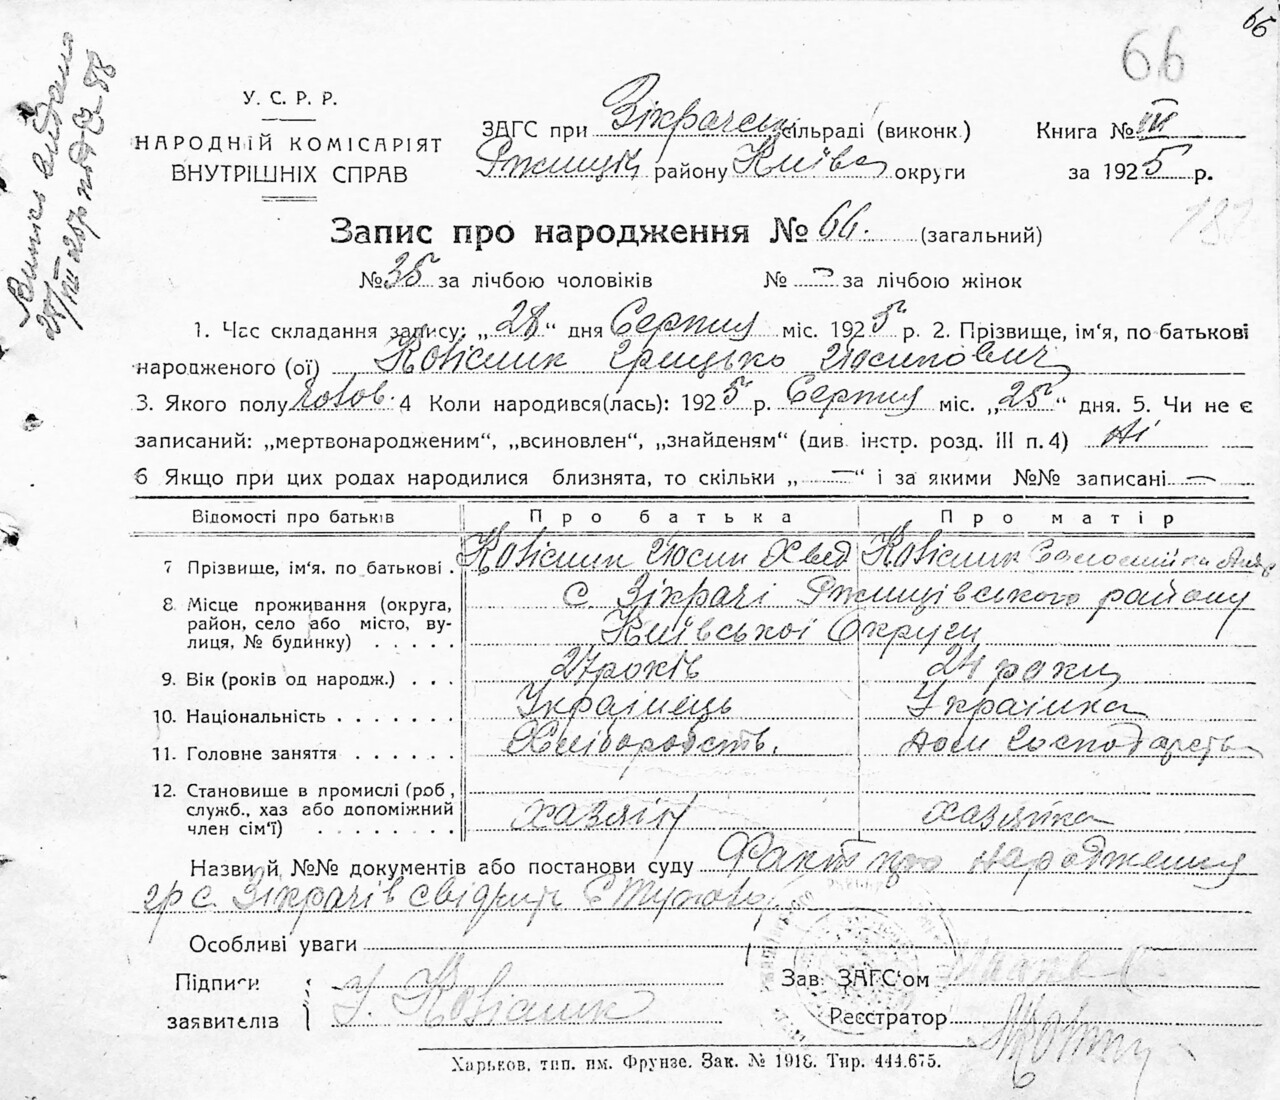 66
66
У. С. Р. Р.
НАРОДНІЙ КОМІСАРІЯТ
ВНУТРІШНІХ СПРАВ
ЗАГС при Зікрачец сільраді (виконк.)
Ржищів району Київс округи
Книга № III
за 1925 р.
187
Запис про народження № 66. (загальний)
№ 35 за лічбою чоловіків № — за лічбою жінок
1. Час складання запису: „28“ дня Серпня міс. 1925 р. 2. Прізвище, ім'я, по батькові
народженого (ої) Ковіслик Грицько Йосипович
3. Якого полу чолов. 4 Коли народився(лась): 1925 р. Серпня міс. „25“ дня. 5. Чи не є
записаний: „мертвонародженим“, „всиновлен“, „знайденям“ (див. інстр. розд. III п. 4) Ні
6 Якщо при цих родах народилися близнята, то скільки „—“ і за якими №№ записані —
Відомості про батьків Про батька Про матір
7 Прізвище, ім'я. по батькові . Йосип Хвед
8 Місце проживання (округа, с. Зікрачі Ржищівського району
район, село або місто, ву- Київської Округи
лиця, № будинку) . . . . .
9. Вік (років од народж.) . . . 27 років 24 роки
10. Національність . . . . . . . Українець Українка
11. Головне заняття . . . . . . Хліборобств. дом господарств
12. Становище в промислі (роб.,
служб., хаз або допоміжний
член сім'ї) . . . . . . . . хазяїн хазяйка
Назви й №№ документів або постанови суду Факт про народження
гр с. Зікрачів свідчить
Особливі уваги
Підписи
заявителів
Й. Ковіслик
Зав. ЗАГС'ом
Реєстратор
Харьков, тип. им. Фрунзе. Зак. № 1918. Тир. 444.675.